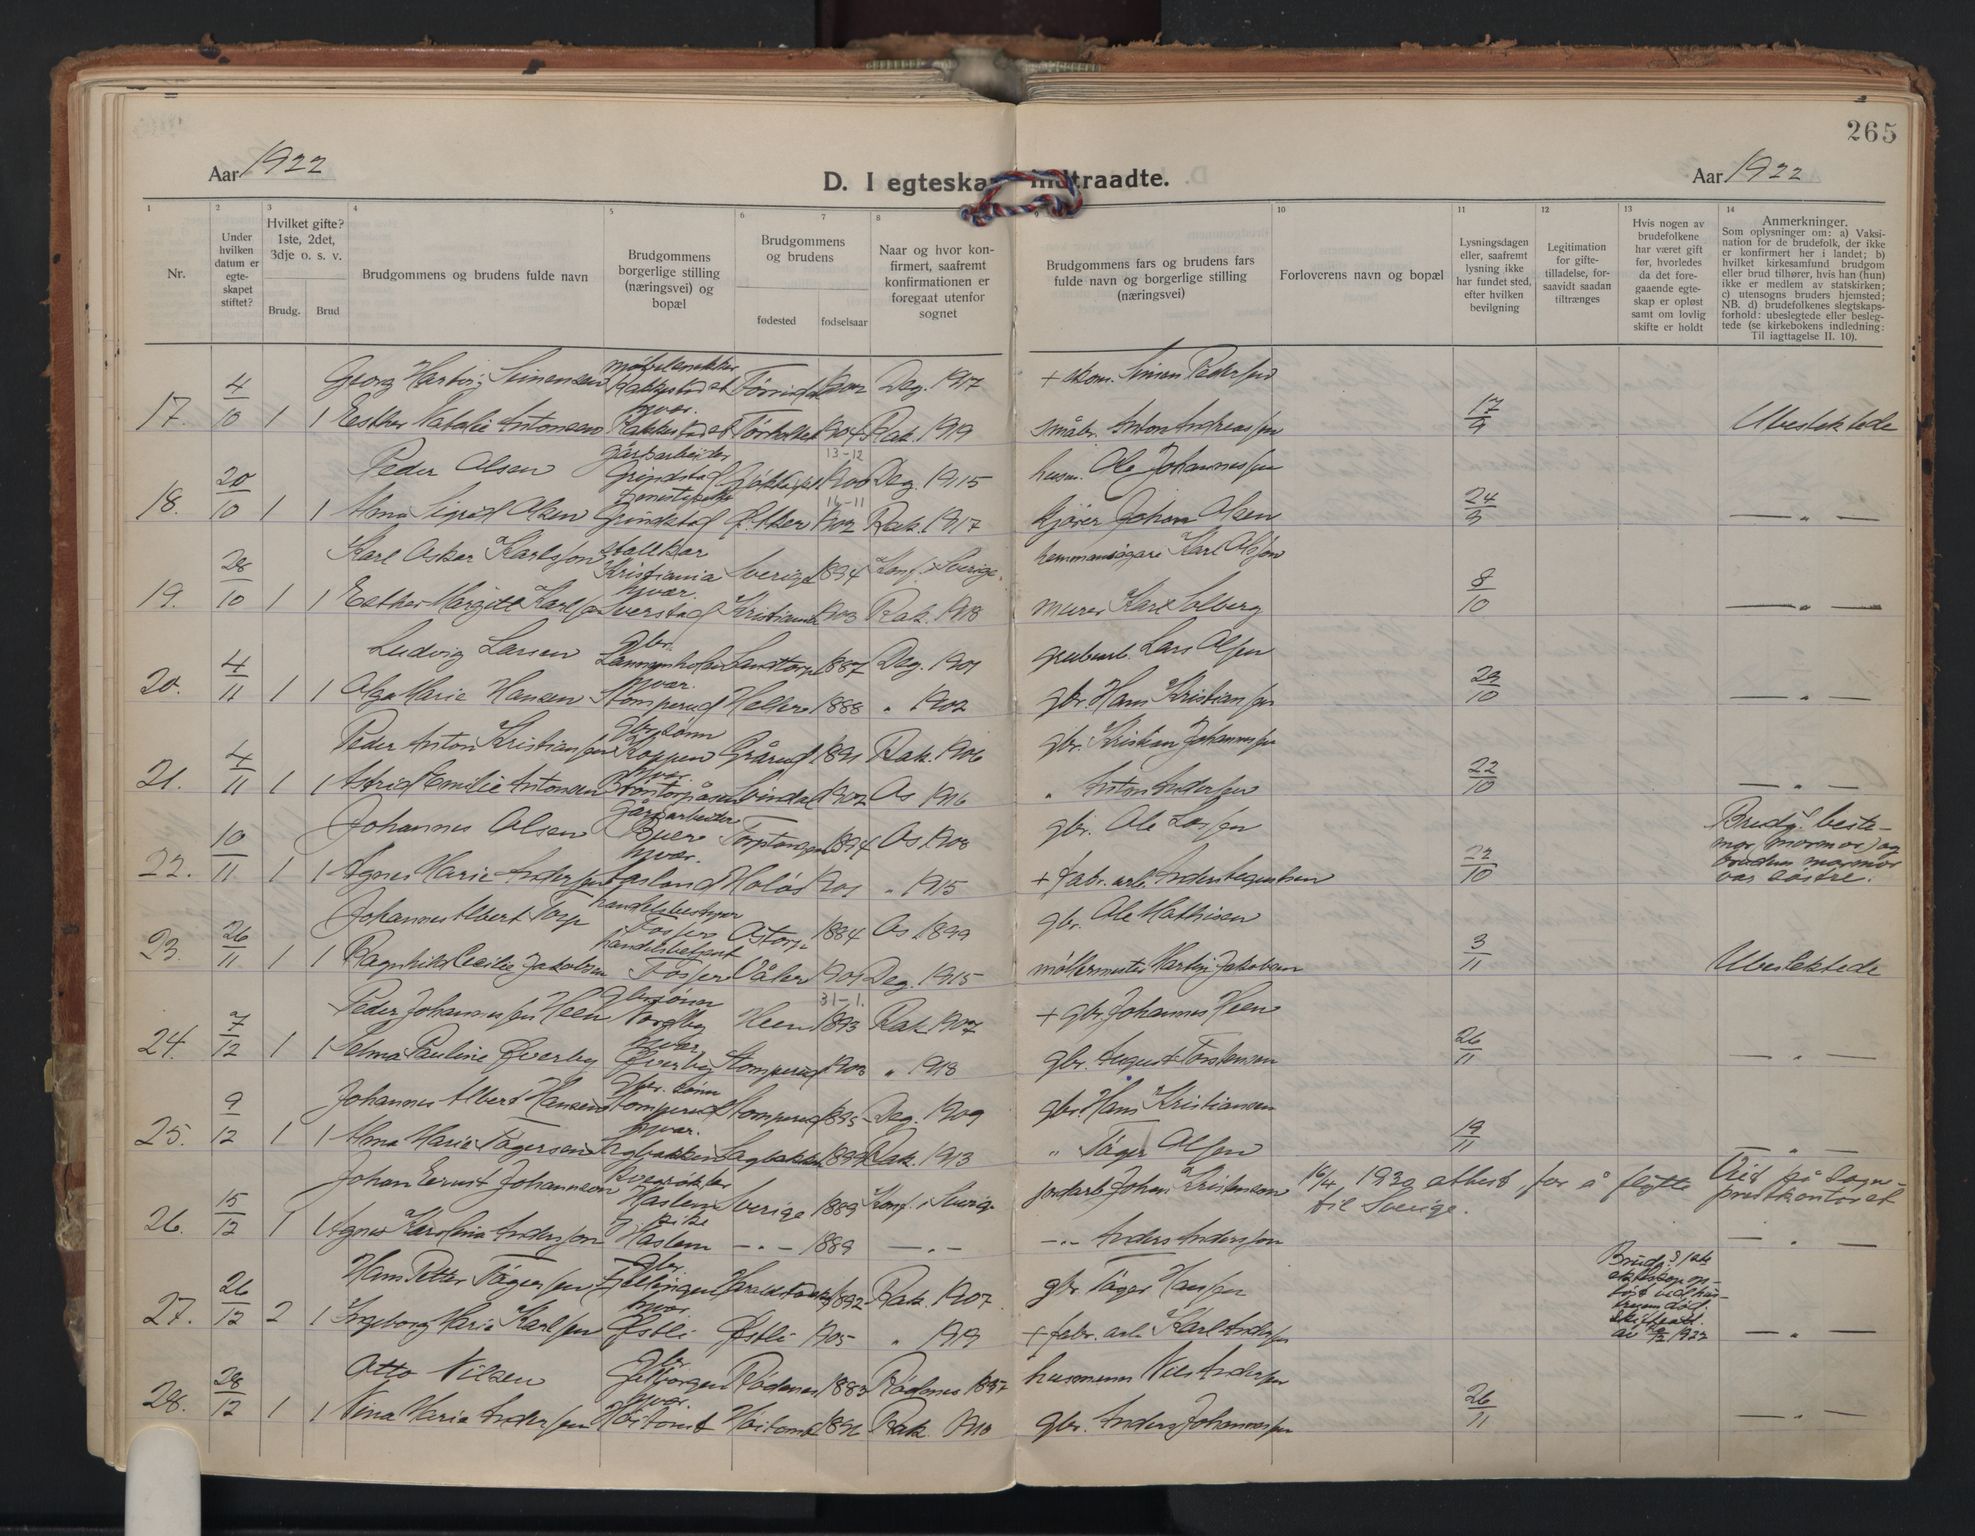 265
Aar 1922
D. I egteska
indtraadte.
Aar 1922
1 2 3 4 5 6 7 8 9 10 11 12 13 14
Nr.
Under hvilken datum er egte-skapet stiftet?
Hvilket gifte? 1ste, 2det, 3dje o. s. v.
Brudg. Brud
Brudgommens og brudens fulde navn
Brudgommens borgerlige stilling (næringsvei) og bopæl
Brudgommens og brudens
fødested fødselsaar
Naar og hvor kon-firmert, saafremt konfirmationen er foregaat utenfor sognet
Brudgommens fars og brudens fars fulde navn og borgerlige stilling (næringsvei)
Forloverens navn og bopæl
Lysningsdagen eller, saafremt lysning ikke har fundet sted, efter hvilken bevilgning
Legitimation for gifte-tilladelse, for-saavidt saadan tiltrænges
Hvis nogen av brudefolkene har været gift før, hvorledes da det fore-gaaende egte-skap er opløst samt om lovlig skifte er holdt
Anmerkninger.
Som oplysninger om: a) Vaksi-nation for de brudefolk, der ikke er konfirmert her i landet; b) hvilket kirkesamfund brudgom eller brud tilhører, hvis han (hun) ikke er medlem av statskirken; c) utensogns bruders hjemsted; NB. d) brudefolkenes slegtskaps-forhold: ubeslegtede eller besleg-tede (se kirkebokens indledning: Til iagttagelse II. 10).
Georg Hartvig Simensen møbelsnekker Rakkestad st 1902 Deg. 1917 + skom. Simen Pedersen
17. 4/10 1 1 Esther Natalie Antonsen hjvær. Rakkestad st 1904 Rak. 1919 småbr. Anton Andreassen 17/9 Ubeslektede
Peder Olsen gårdsarbeider Grindstad 13-12 1900 Deg. 1915 husm. Ole Johannessen
18. 20/10 1 1 Alma Sigrid Olsen Grindstad 16-11 1902 Rak. 1917 kjører Johan Olsen 24/9 — " —
Karl Oskar Karlsson Kristiania Sverige 1894 Konf. i Sverige hemmansägare Karl Olsson
19. 28/10 1 1 Esther Margitt Karlsen hjvær. Sverstad Kristiania 1903 Rak. 1918 murer Karl Solberg 8/10 — " —
Ludvig Larsen gbr. 1887 Deg. 1901 grubearb. Lars Olsen
20. 4/11 1 1 Olga Marie Hansen hjvær. Stomperud Heller 1888 " 1902 gbr. Hans Kristiansen 23/10 — " —
Peder Anton Kristiansen gbr. sønn Koppen Grårud 1891 Rak. 1906 gbr. Kristian Johannessen
21. 4/11 1 1 Astrid Emilie Antonsen hjvær. 1902 Os 1916 " Anton Andersen 22/10 — " —
Johannes Olsen gårdsarbeider Buer 1894 Os 1908 gbr. Ole Larsen Brudg. beste-
22. 10/11 1 1 Agnes Marie Andersen hjvær. 1901 " 1915 + fabr. arb. Anders 22/10 mor (mormor) og brudens mormor var søstre.
Johannes Albert Torp handelsbestyrer Fosser 1884 Os 1899 gbr. Ole Mathisen
23. 26/11 1 1 Ragnhild Cecilie Jakobsen handelsbetjent Fosser Våler 1901 Deg. 1915 møllermester Martin Jakobsen 3/11 Ubeslektede
Peder Johannessen Heen gbr. sønn Nordby Heen 31-1. 1893 Rak 1907 + gbr. Johannes Heen
24. 7/12 1 1 Selma Pauline Øverby hjvær. Øverby Stomperud 1903 " 1918 gbr. August Torstensen 26/11 — " —
Johannes Albert Hansen gbr. sønn Stomperud Stomperud 1895 Deg. 1909 gbr. Hans Kristiansen
25. 9/12 1 1 Alma Marie Tågersen hjvær. Sagbakken Sagbakken 1899 Rak. 1913 " Tåger Olsen 19/11 — " —
Johan Ernst Johansson Haslem Sverige 1889 Konf. i Sverige jordarb. Johan Kristenson 16/4 1930 attest for å flytte til Sverige. Viet på sogne-prestkontoret
26. 15/12 1 1 Agnes Karolina Andersson Haslem — " — 1889 — " — — " — Anders Andersson — " —
Hans Petter Tågersen gbr. 1892 Rak 1907 gbr. Tåger Hansen Brudg.s 1ste ekteskap op-løst ved hus-truens død. Skifteatt. av 1922
27. 26/12 2 1 Ingeborg Marie Karlsen hjvær. Østli Østli 1905 " 1919 + fabr. arb. Karl Andersen — " —
Otto Nilsen gbr. Rødenes 1883 Rødenes 1897 husmann Nils Andersen
28. 28/12 1 1 Nina Marie Andersen hjvær. Høitomt Høitomt 1896 Rak. 1910 gbr. Anders Johannessen 26/11 — " —